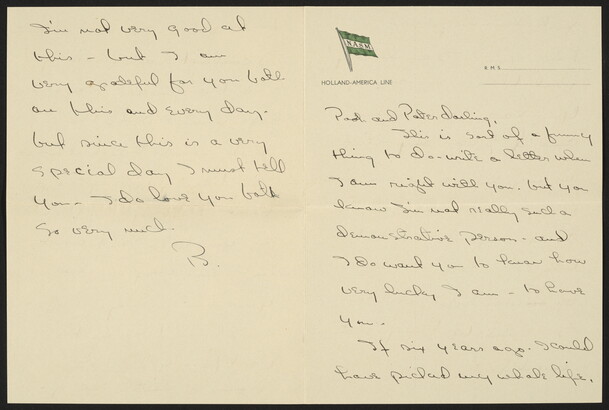 NASM
HOLLAND-AMERICA LINE
R.M.S.
and Pater darling,
This is sort of a funny
thing to do - write a letter when
I am right with you. but you
know I'm not really such a
demonstrative person - and
I do want you to know how
very lucky I am - to have
you.
If six years ago. I could
have picked my whole life,
I'm not very good at
this - but I am
very grateful for you both
on this and every day.
but since this is a very
special day I must tell
you - I do love you both
so very much.
B.